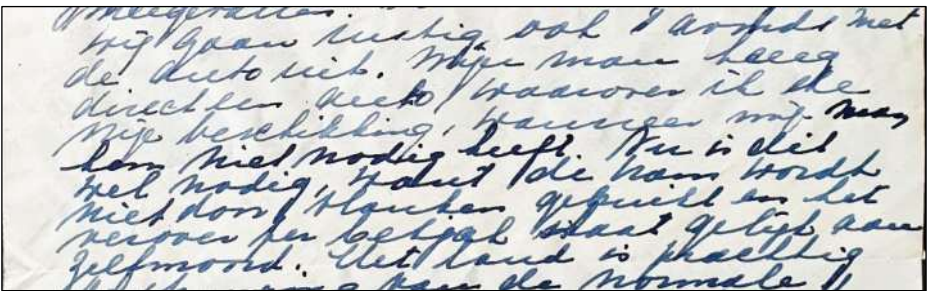 meegevallen.
wij gaan rustig ook 's avonds met
de auto uit. Mijn man kreeg
direct een auto, waarover ik vrije
beschikking, wanneer mijn man
hem niet nodig heeft. Nu is dit
wel nodig, want de tram wordt
niet door blanken gebruikt en het
vervoer per betjah staat gelijk aan
zelfmoord. Het land is prachtig
van de normale